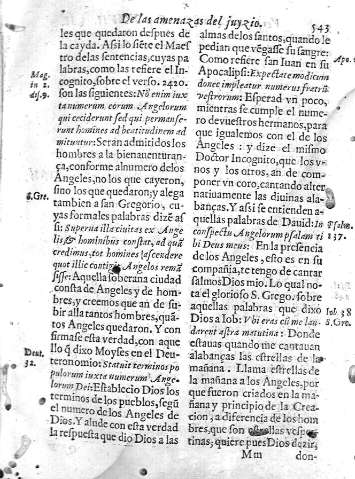 De las amenazas del juyzio.
543
les que quedaron despues de
la cayda. Assi lo siẽte el Maes
tro delas sentencias, cuyas pa
labras, como las refiere el In-
cognito, sobre el verso. 2420.
son las siguientes: Nõ enim iux
ta numerum eorum Angelorum
qui ceciderunt sed qui permanse-
runt homines ad beatitudinem ad
mittuntur: Seran admitidos los
hombres a la bienauenturan-
ça, conforme alnumero delos
Angeles, no los que cayeron,
sino los que quedaron; y alega
tambien a san Gregorio, cu-
yas formales palabras dizẽ as
si: Superna illa ciuitas ex Ange
lis, & hominibus constat, ad quã
credimus, tot homines ascendere
quot illic contigit Angelos remã
sisse: Aquella soberana ciudad
consta de Angeles y de hom-
bres, y creemos que an de su-
bir alla tantos hombres, quã-
tos Angeles quedaron. Y con
firmase esta verdad, con aque
llo q̃ dixo Moyses en el Deu-
teronomio: Statuit terminos po
pulorum iuxta numerum Ange-
lorum Dei: Establecio Dios los
terminos de los pueblos, segũ
el numero de los Angeles de
Dios. Y alude con esta verdad
la respuesta que dio Dios a las
Mag.
in 2.
dis. 9.
S. Gre.
Deut.
32.
almas de los santos, quando le
pedian que vẽgasse su sangre:
Como refiere san Iuan en su
Apocalipsi: Expectate modicum
donec impleatur numerus fratrũ
vestrorum: Esperad vn poco,
mientras se cumple el nume-
ro devuestros hermanos, para
que igualemos con el de los
Angeles: y dize el mismo
Doctor Incognito, que los v-
nos y los otros, an de compo-
ner vn coro, cantando alter-
natiuamente las diuinas ala-
banças. Y assi se entienden a-
quellas palabras de Dauid: In
conspectu Angelorum psalam ti
bi Deus meus: En la presencia
de los Angeles, esto es en su
compañia, te tengo de cantar
salmos Dios mio. Lo qual no-
ta el glorioso S. Grego. sobre
aquellas palabras que dixo
Dios a Iob: Vbi eras cũ me lau-
darent astra matutina: Donde
estauas quando me cantauan
alabanças las estrellas de la
mañana. Llama estrellas de
la mañana a los Angeles, por
que fueron criados en la ma-
ñana y principio de la Crea-
cion, a diferencia de los hom
bres, que son estrellas vesper
tinas; quiere pues Dios dezir,
Apo.
137.
Iob. 38
S. Gre.
Mm
don-